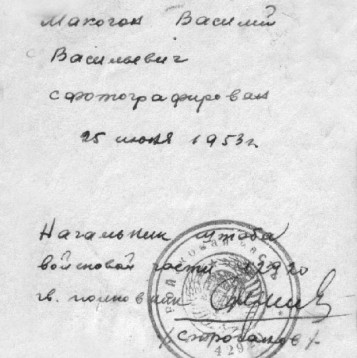 Макогон Василий
Васильевич
сфотографирован
25 июня 1953 г.
Начальник штаба
войсковой части 42920
гв. полковник